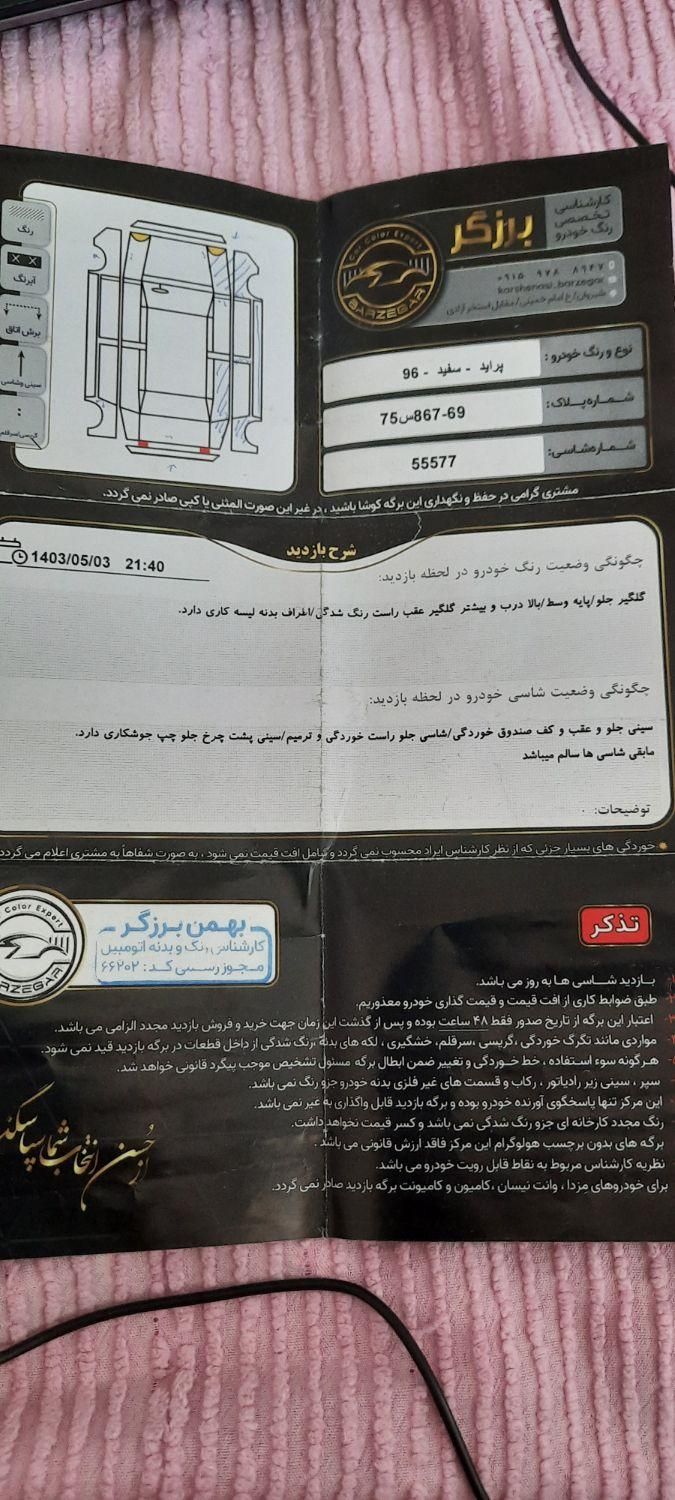 کارشناسی
تخصصی
رنگ خودرو
برزگر
Car Color Expert
BARZEGAR
۰۹۱۵ ۹۷۸ ۸۹۴۷
karshenasi_barzegar
شیروان/خ امام خمینی/مقابل استخر آزادی
رنگ
آبرنگ
برش اتاق
سینی وشاسی
نوع و رنگ خودرو :
پراید - سفید - 96
شماره پلاک:
75س867-69
شماره شاسی:
55577
مشتری گرامی در حفظ و نگهداری این برگه کوشا باشید ، در غیر این صورت المثنی یا کپی صادر نمی گردد.
شرح بازدید
1403/05/03 21:40
چگونگی وضعیت رنگ خودرو در لحظه بازدید:
گلگیر جلو/پایه وسط/بالا درب و بیشتر گلگیر عقب راست رنگ شدگی/اطراف بدنه لیسه کاری دارد.
چگونگی وضعیت شاسی خودرو در لحظه بازدید:
سینی جلو و عقب و کف صندوق خوردگی/شاسی جلو راست خوردگی و ترمیم/سینی پشت چرخ جلو چپ جوشکاری دارد.
مابقی شاسی ها سالم میباشد
توضیحات: .
خوردگی های بسیار جزئی که از نظر کارشناس ایراد محسوب نمی گردد و شامل افت قیمت نمی شود ، به صورت شفاهاً به مشتری اعلام می گردد
Color Expert
BARZEGAR
بهمن برزگر
کارشناس رنگ و بدنه اتومبیل
مجوز رسمی کد: ۶۶۲۰۲
تذکر
بازدید شاسی ها به روز می باشد.
طبق ضوابط کاری از افت قیمت و قیمت گذاری خودرو معذوریم.
اعتبار این برگه از تاریخ صدور فقط ۴۸ ساعت بوده و پس از گذشت این زمان جهت خرید و فروش بازدید مجدد الزامی می باشد.
مواردی مانند تگرگ خوردگی ،گریسی ،سرقلم، خشگیری ، لکه های بدنه ،رنگ شدگی از داخل قطعات در برگه بازدید قید نمی شود.
هرگونه سوء استفاده ، خط خوردگی و تغییر ضمن ابطال برگه مسئول تشخیص موجب پیگرد قانونی خواهد شد.
سپر ، سینی زیر رادیاتور ، رکاب و قسمت های غیر فلزی بدنه خودرو جزو رنگ نمی باشد.
این مرکز تنها پاسخگوی آورنده خودرو بوده و برگه بازدید قابل واگذاری به غیر نمی باشد.
رنگ مجدد کارخانه ای جزو رنگ شدگی نمی باشد و کسر قیمت نخواهد داشت.
برگه های بدون برچسب هولوگرام این مرکز فاقد ارزش قانونی می باشد.
نظریه کارشناس مربوط به نقاط قابل رویت خودرو می باشد.
برای خودروهای مزدا ، وانت نیسان ،کامیون و کامیونت برگه بازدید صادر نمی گردد.
از حُسن انتخاب شما سپاسگزاریم